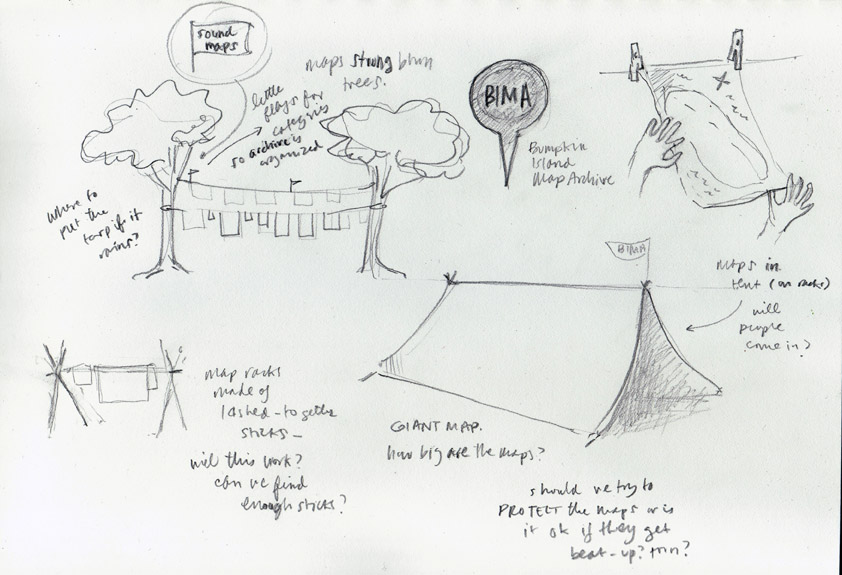 sound
maps
maps strung btwn
trees.
little
flags for
categories
so archive is
organized
where to
put the
tarp if it
rains?
BIMA
Bumpkin
Island
Map Archive
BIMA
maps in
tent (on racks)
will
people
come in?
map racks
made of
lashed-together
sticks—
will this work?
can we find
enough sticks?
GIANT MAP.
how big are the maps?
should we try to
PROTECT the maps or is
it ok if they get
beat-up? torn?